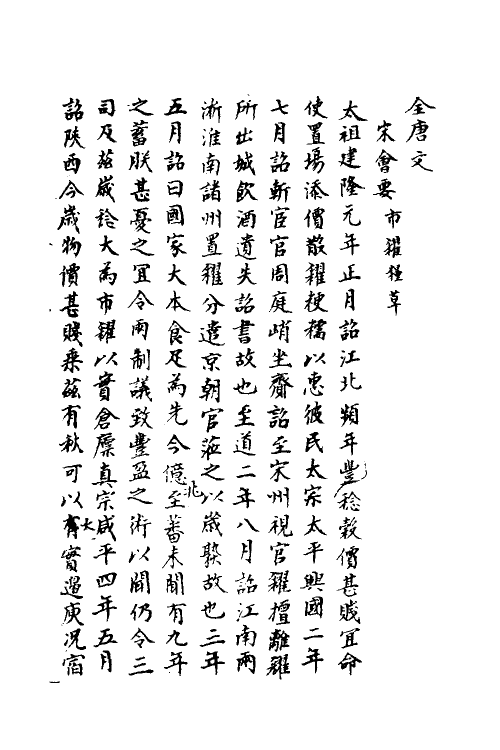 全唐文
宋會要 市糴糧草
太祖建隆元年正月詔江北頻年豐稔穀價甚賤宜命
使置場添價散糴粳糯以惠彼民太宗太平興國二年
七月詔斬宦官周庭峭坐齎詔至宋州視官糴擅離糴
所出城飲酒遺失詔書故也至道二年八月詔江南兩
淅淮南諸州置糴分遣京朝官蒞之以歲稔故也三年
五月詔曰國家大本食足為先今億兆至蕃未聞有九年
之蓄朕甚憂之宜令兩制議致豐盈之術以聞仍令三
司及茲歲稔大為市糴以實倉廩真宗咸平四年五月
詔陝西今歲物價甚賤乘茲有秋可以大實邊庾況宿